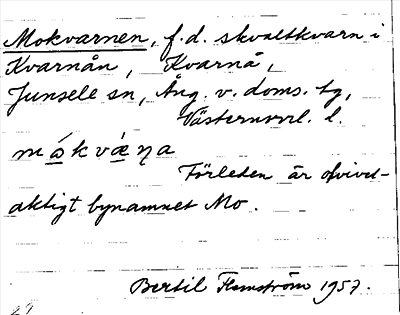 Mokvarnen, f.d. skvaltkvarn i
Kvarnån, Kvarnå,
Junsele sn, Ång. v. doms. tg,
Västernorrl. l.
mó̱kvǽ̱ṇa
Förleden är otvivel-
aktigt bynamnet Mo.
Bertil Flemström 1957.
29